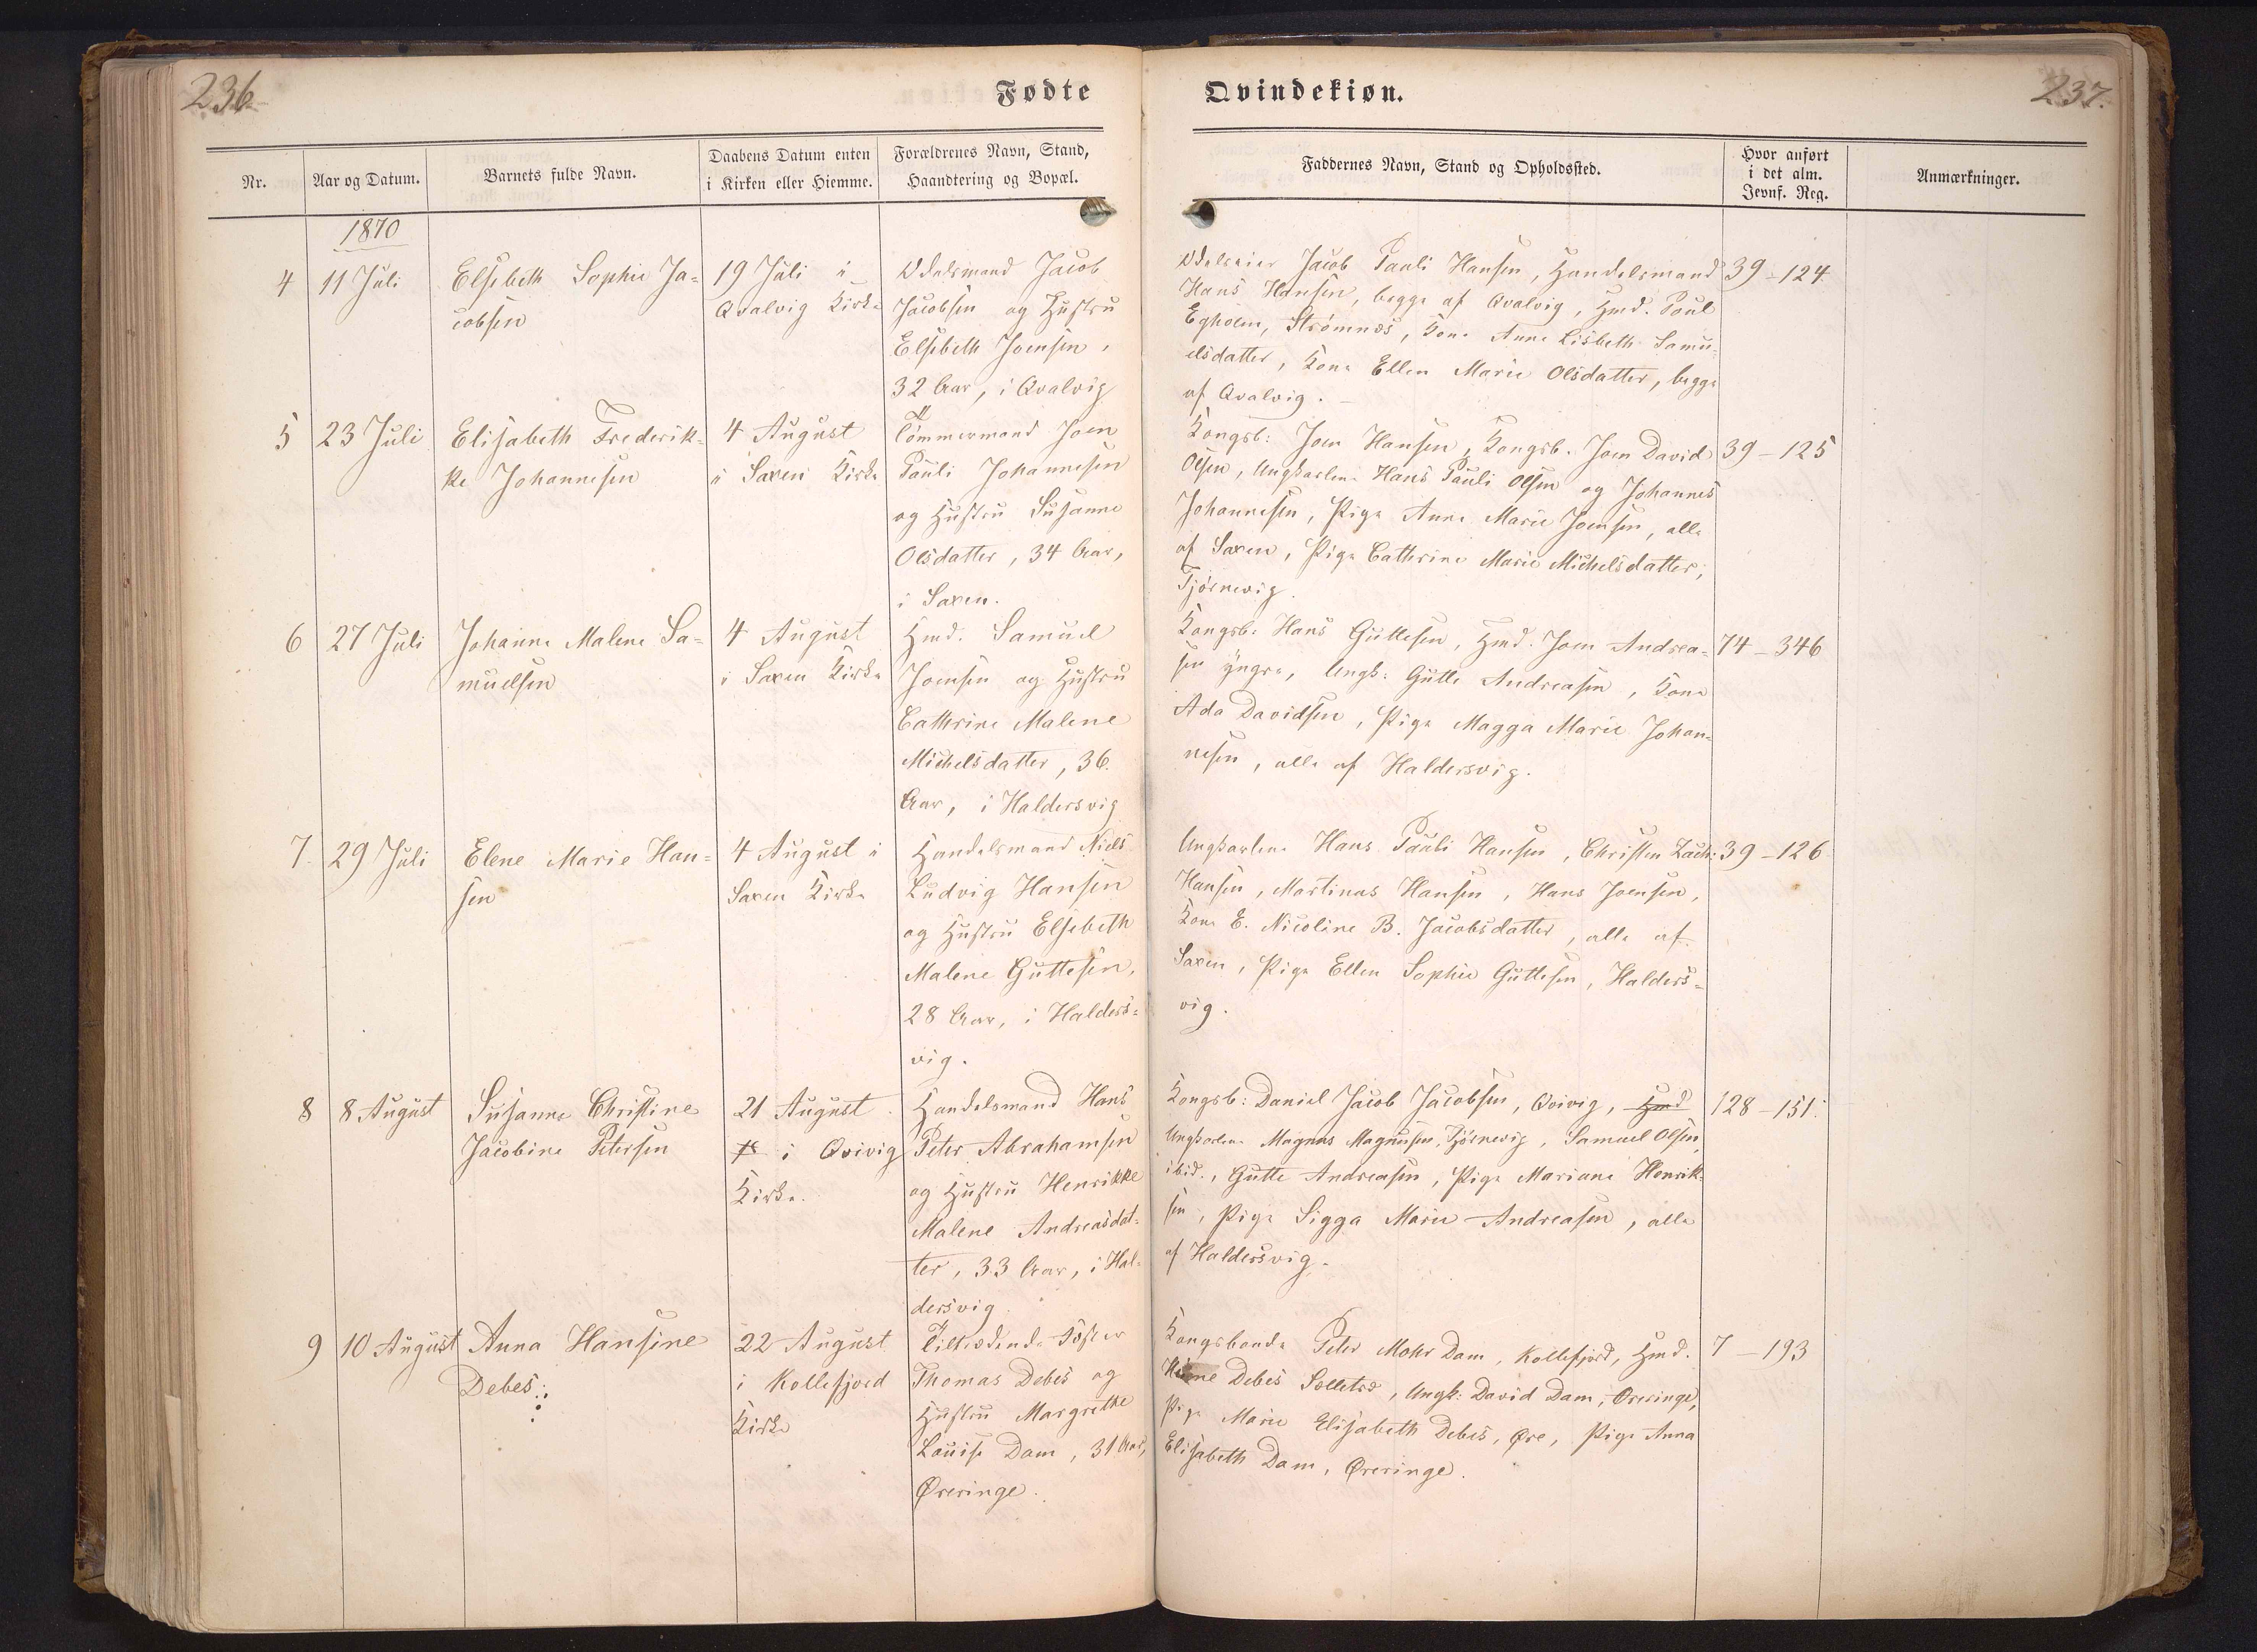 236
Fødte
Nr.
Aar og Datum.
Barnets fulde Navn.
Daabens Datum enten
i Kirken eller Hiemme.
Forældrenes Navn, Stand,
Haandtering og Bopæl.
1870
4
11 Juli
Elsebeth Sophie Ja=
cobsen
19 Juli i
Qvalvig Kirke
Odelsmand Jacob
Jacobsen og Hustru
Elsebeth Joensen,
32 Aar, i Qvalvig
5
23 Juli
Elisabeth Frederik=
ke Johannesen
4 August
i Saxen Kirke
Tømmermand Joen
Pauli Johannesen
og Hustru Susanne
Olsdatter, 34 Aar,
i Saxen.
6
27 Juli
Johanne Malene Sa=
muelsen
4 August
i Saxen Kirke
Hmd. Samuel
Joensen og Hustru
Cathrine Malene
Michelsdatter, 36
Aar, i Haldersvig
7.
29 Juli
Elene Marie Han=
sen
4 August i
Saxen Kirke
Handelsmand Niels
Ludvig Hansen
og Hustru Elsebeth
Malene Guttesen,
28 Aar, i Halders=
vig.
8
8 August
Susanne Christine
Jacobine Petersen
21 August
i Qvivig
Kirke.
Handelsmand Hans
Peter Abrahamsen
og Hustru Henrikke
Malene Andreasdat=
ter, 33 Aar, i Hal=
dersvig
9
10 August
Anna Hansine
Debes.
22 August
i Kollefjord
Kirke
Tiltrædende Fæster
Thomas Debes og
Hustru Margrethe
Louise Dam, 31 Aar,
Øreringe.
Qvindekiøn.
237.
Faddernes Navn, Stand og Opholdssted.
Hvor anført
i det alm.
Jevnf. Reg.
Anmærkninger.
Odelseier Jacob Pauli Hansen, Handelsmand
Hans Hansen, begge af Qvalvig, Hmd. Poul
Egholm, Strømnæs, Kone Anne Lisbeth Samu=
elsdatter, Kone Ellen Marie Olsdatter, begge
af Qvalvig.
39-124.
Kongsb: Joen Hansen, Kongsb. Joen David
Olsen, Ungkarlene Hans Pauli Olsen og Johannes
Johannesen, Pige Anne Marie Joensen, alle
af Saxen, Pige Cathrine Marie Michelsdatter,
Tjørnevig.
39-125
Kongsb: Hans Guttesen, Hmd. Joen Andrea=
sen yngre, Ungk: Gutte Andreasen, Kone
Ada Davidsen, Pige Magga Marie Johan=
nesen, alle af Haldersvig.
74-346
Ungkarlene Hans Pauli Hansen, Christen Zach:
Hansen, Martinus Hansen, Hans Joensen,
Kone E. Nicoline B. Jacobsdatter, alle af
Saxen, Pige Ellen Sophie Guttesen, Halders=
vig.
39-126
Kongsb: Daniel Jacob Jacobsen, Qvivig, Hmd
Ungkarlene Magnus Magnusen, Tjørnevig, Samuel Olsen,
ibid., Gutte Andreasen, Pige Mariane Henrik=
sen, Pige Sigga Marie Andreasen, alle
af Haldersvig.
128-151.
Kongsbonde Peter Mohr Dam, Kollefjord, Hmd.
Debes Selletræ, Ungk: David Dam, Øreringe,
Pige Marie Elisabeth Debes, Øre, Pige Anna
Elisabeth Dam, Øreringe.
7-193